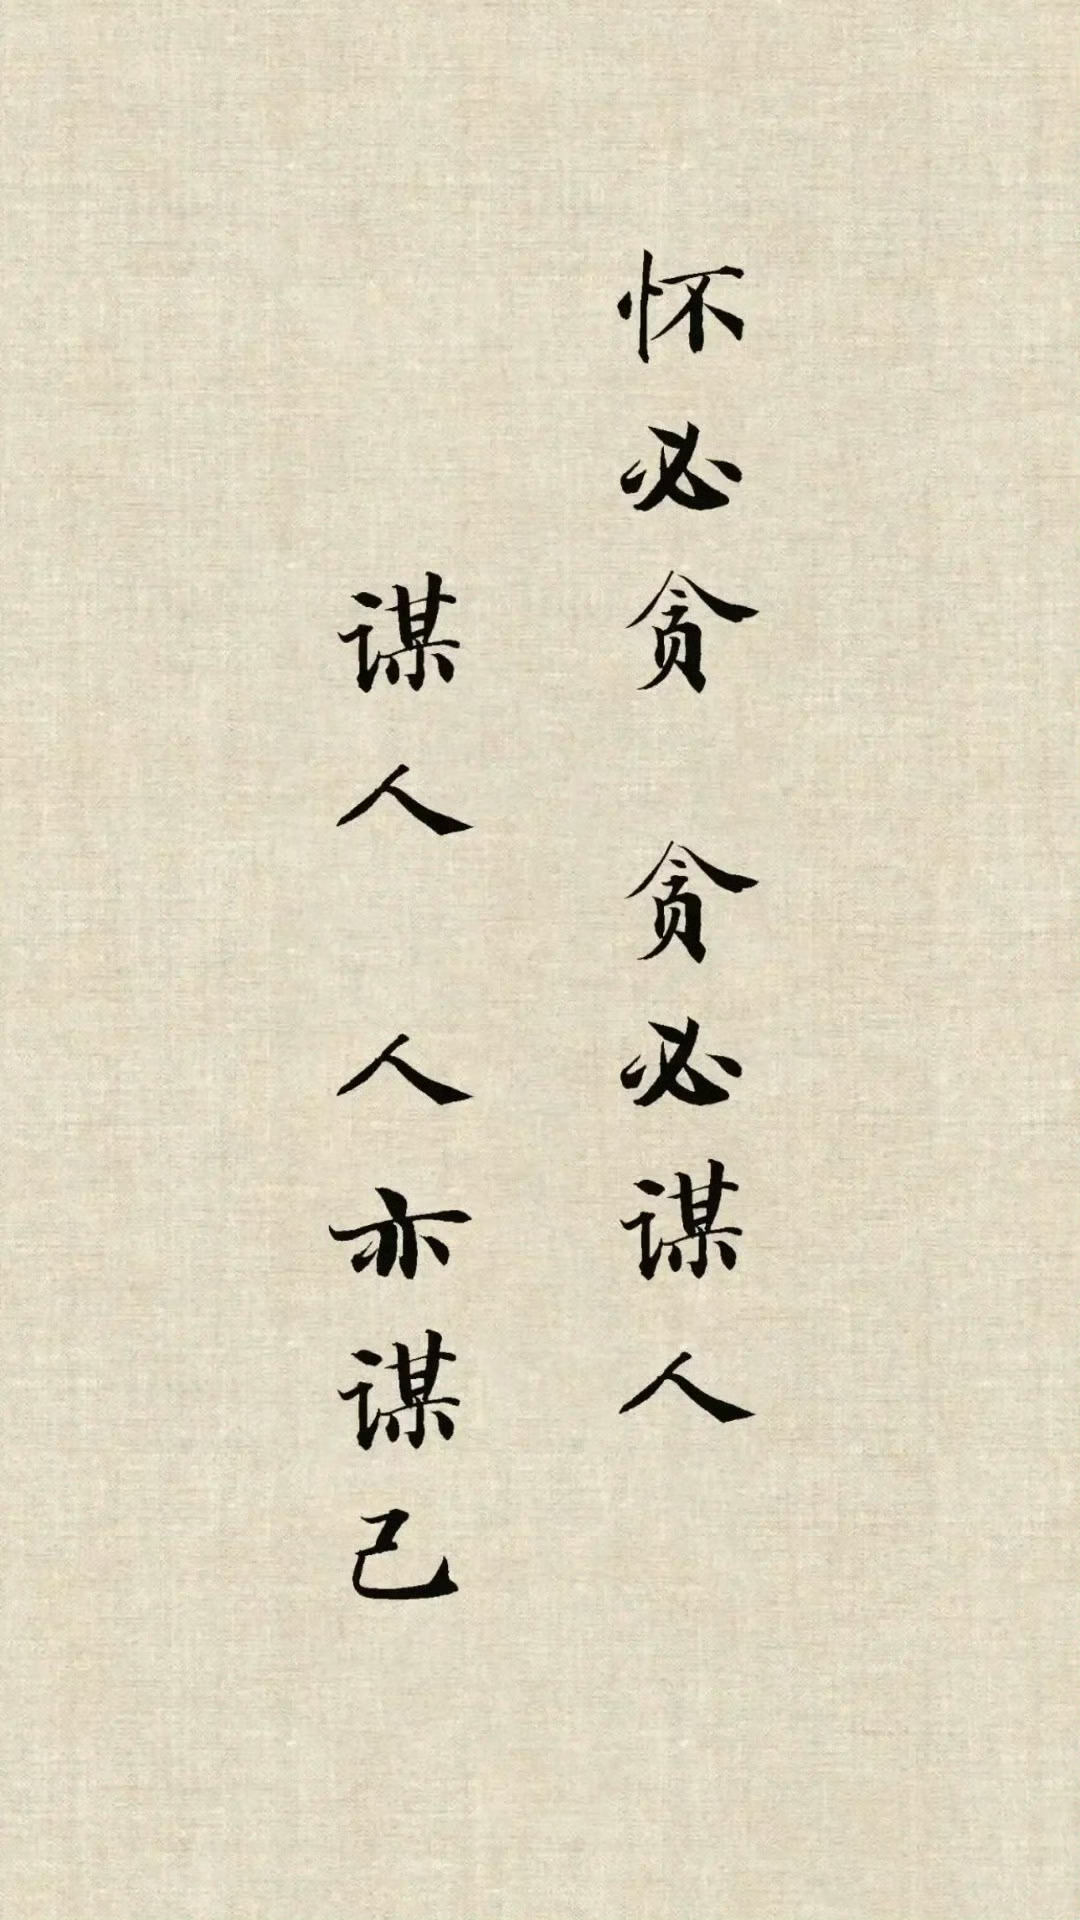 怀必贪 贪必谋人
谋人 人亦谋己